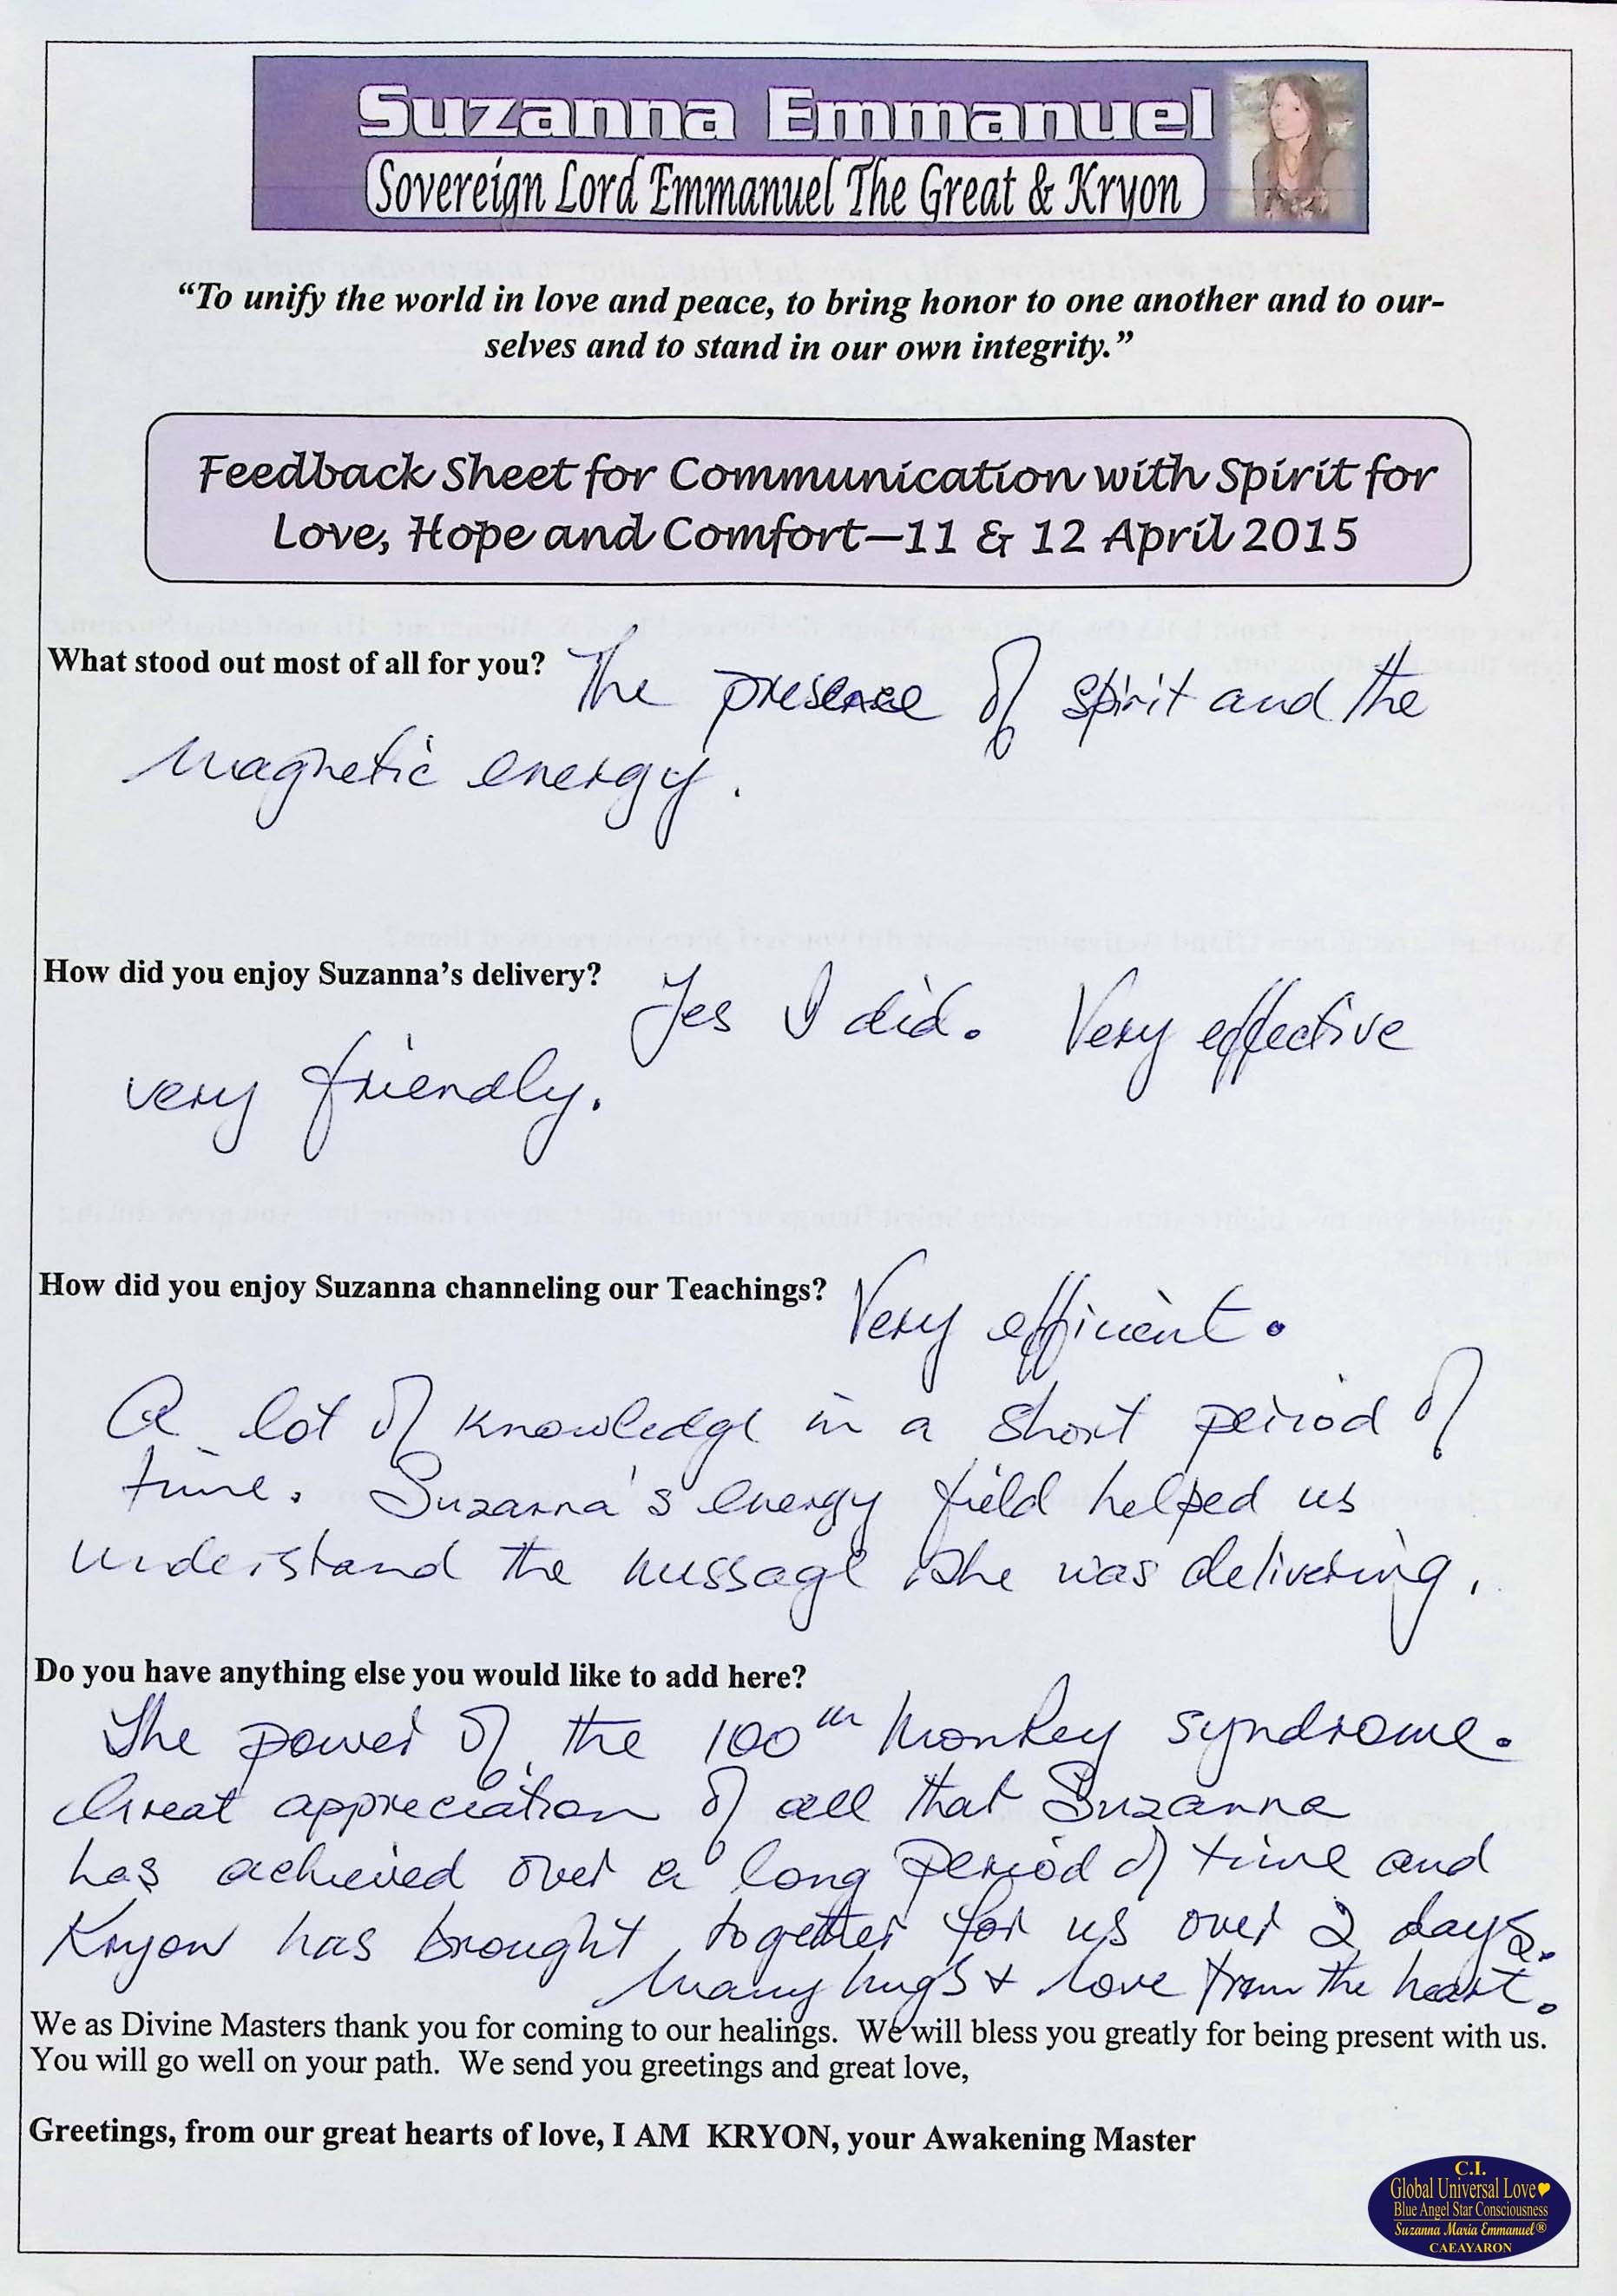 Suzanna Emmanuel
Sovereign Lord Emmanuel The Great & Kryon
“To unify the world in love and peace, to bring honor to one another and to our-
selves and to stand in our own integrity.”
Feedback Sheet for Communication with Spirit for
Love, Hope and Comfort—11 & 12 April 2015
What stood out most of all for you? The presence of spirit and the
magnetic energy.
How did you enjoy Suzanna’s delivery? Yes I did. Very effective
very friendly.
How did you enjoy Suzanna channeling our Teachings? Very efficient.
A lot of knowledge in a short period of
time. Suzanna's energy field helped us
understand the message she was delivering.
Do you have anything else you would like to add here?
The power of the 100th Monkey syndrome.
Great appreciation of all that Suzanna
has achieved over a long period of time and
Kryon has brought together for us over 2 days.
Many hugs + love from the heart.
We as Divine Masters thank you for coming to our healings.  We will bless you greatly for being present with us.
You will go well on your path.  We send you greetings and great love,
Greetings, from our great hearts of love, I AM  KRYON, your Awakening Master
C.I.
Global Universal Love
Blue Angel Star Consciousness
Suzanna Maria Emmanuel®
CAEAYARON